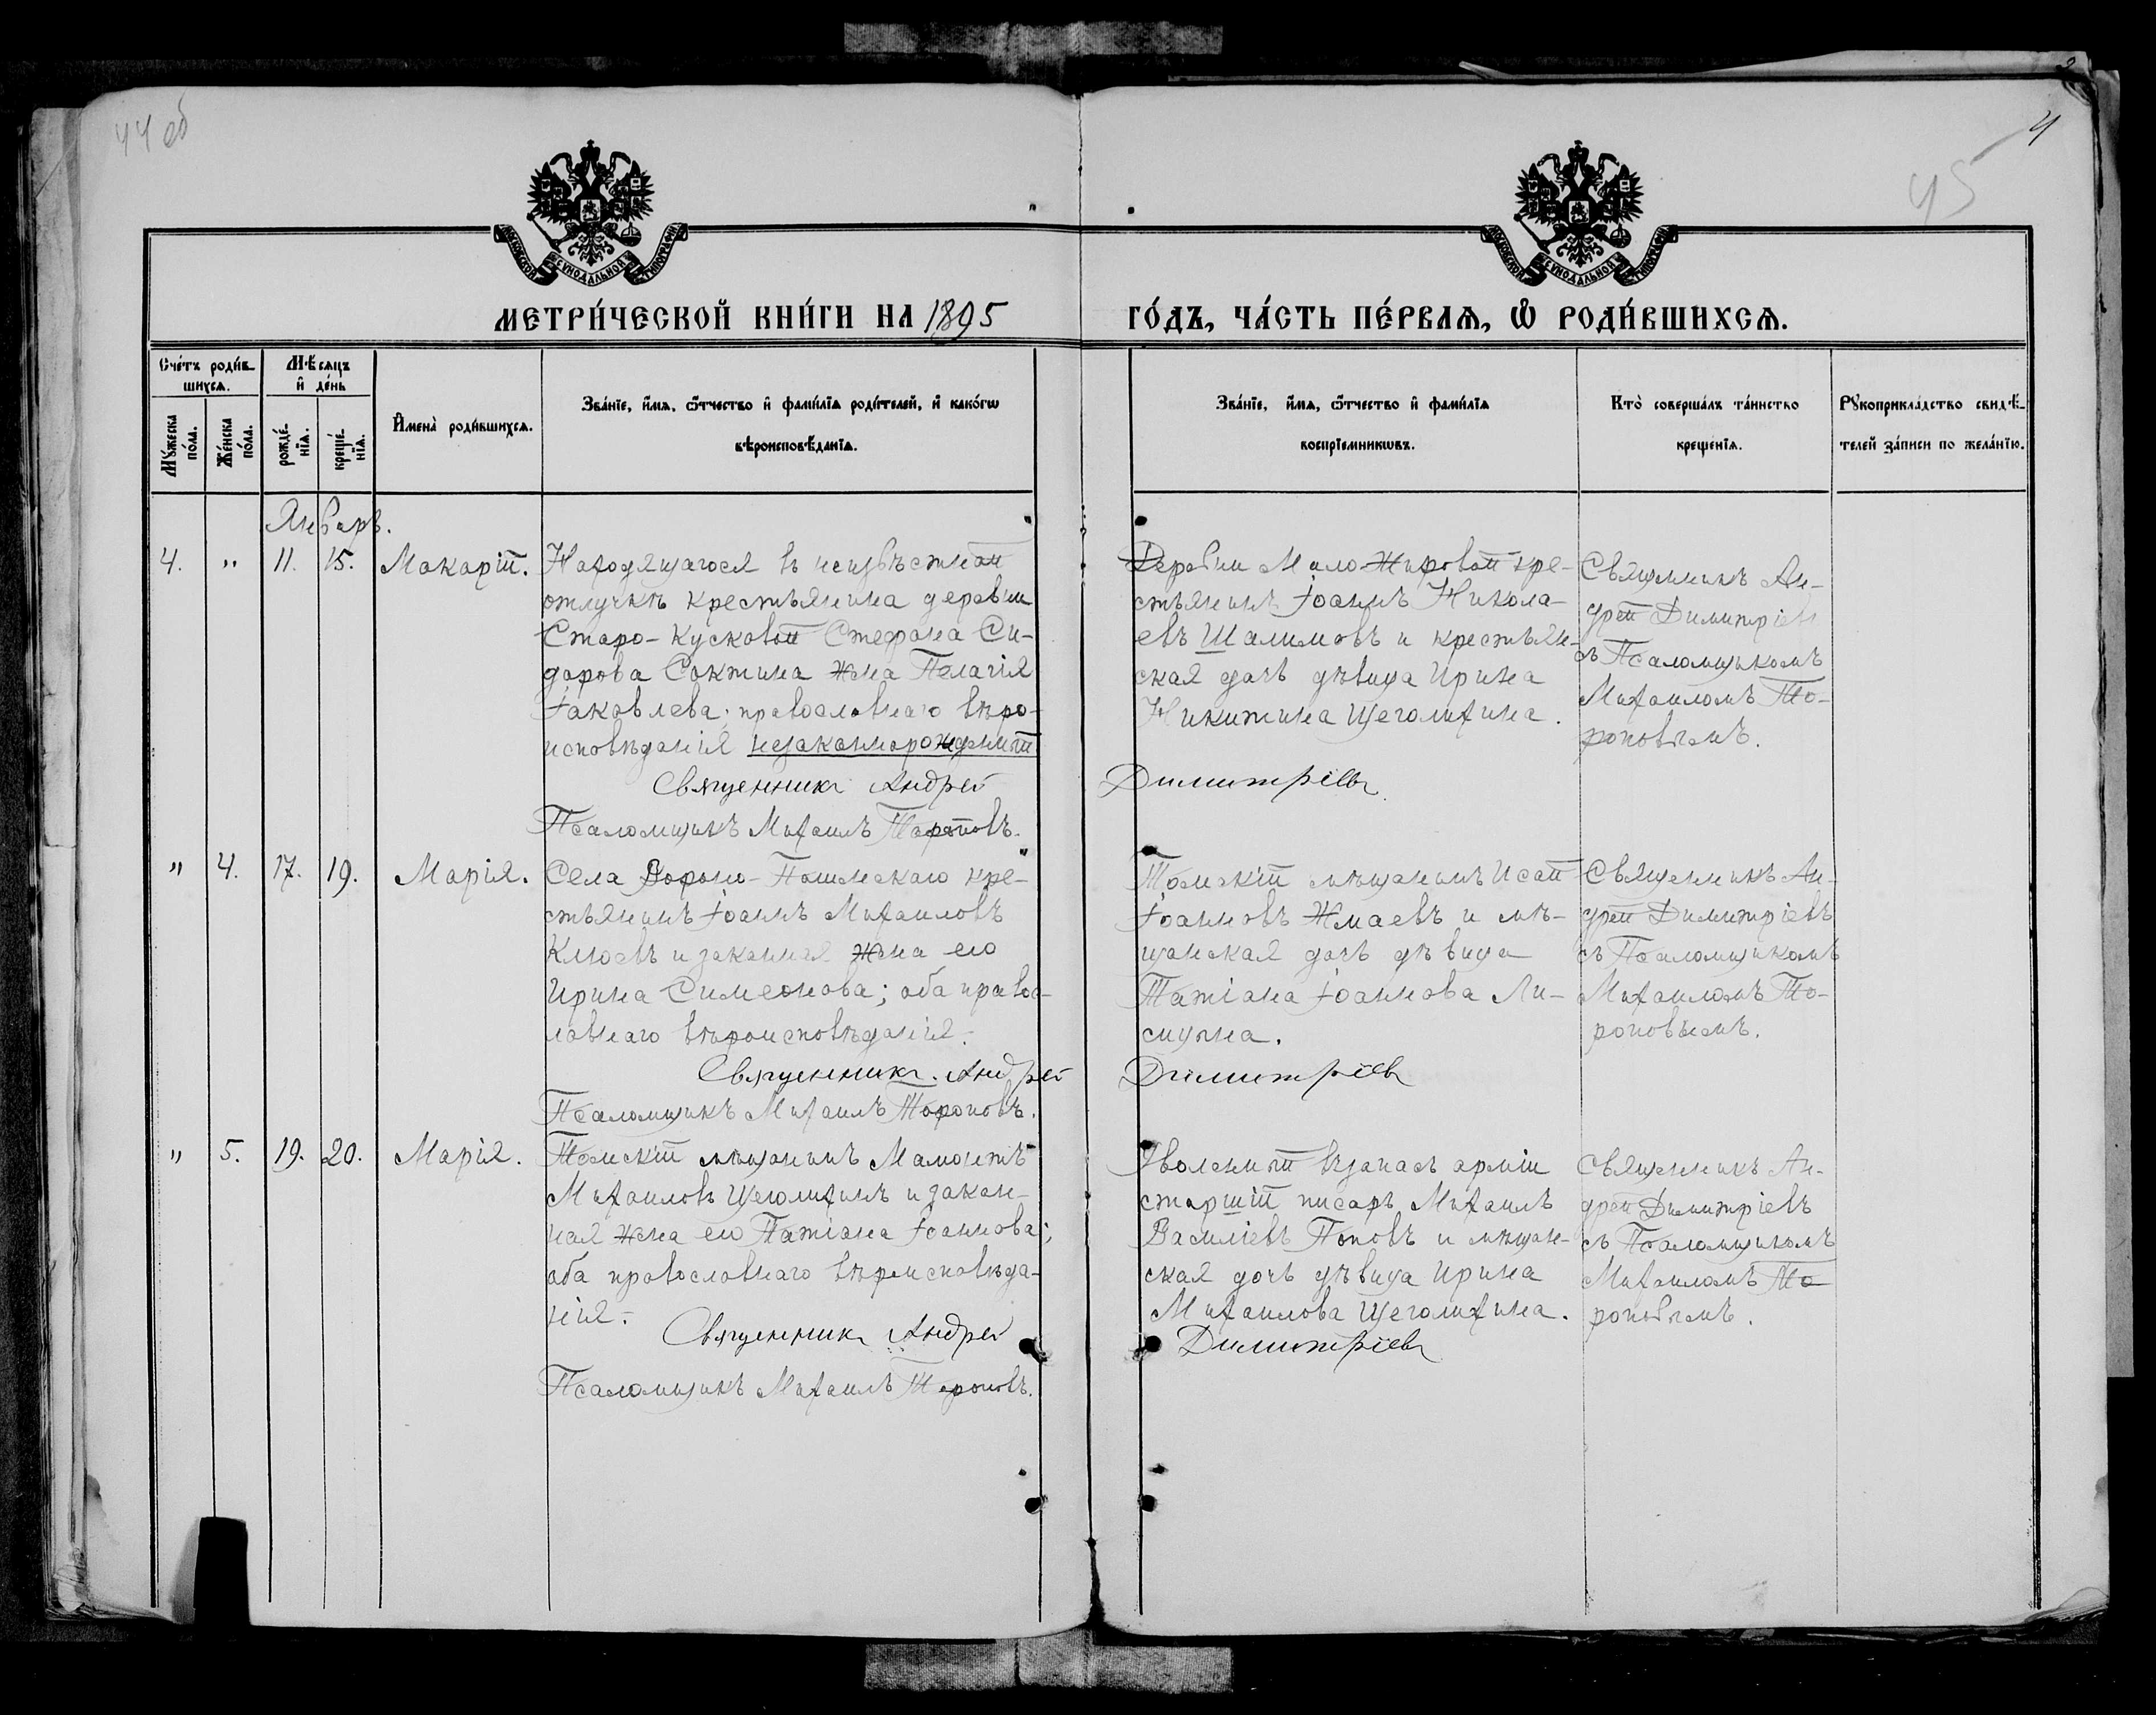 44 об
4
45
МОСКОВСКОЙ СѴНОДАЛЬНОЙ ТИПОГРАФІИ
МОСКОВСКОЙ СѴНОДАЛЬНОЙ ТИПОГРАФІИ
МЕТРИ́ЧЕСКОЙ КНИ́ГИ НА 1895
ГО́ДЪ, ЧА́СТЬ ПЕ́РВАѦ, Ѡ РОДИ́ВШИХСѦ.
Сче́тъ роди́в-
шихсѧ.
Мѣ́сѧцъ
и҆ де́нь
Мꙋ́жеска
по́ла.
Же́нска
по́ла.
рожде́-
нїѧ.
креще́-
нїѧ.
И҆мена̀ роди́вшихсѧ.
Зва́нїе, и҆́мѧ, ѻ҆́тчество и҆ фами́лїѧ роди́телей, и҆ како́гѡ
вѣроисповѣ́данїѧ.
Зва́нїе, и҆́мѧ, ѻ҆́тчество и҆ фами́лїѧ
воспрїе́мникѡвъ.
Кто̀ соверша́лъ та́инство
креще́нїѧ.
Рꙋкоприкла́дство свидѣ́-
телей за́писи по жела́нїю.
Январь.
4. " 11. 15. Макарій.
Находящагося въ неизвѣстной
отлучкѣ крестьянина деревни
Старо-Кусковой Стефана Си-
дорова Соктина жена Пелагія
Іаковлева; православнаго вѣро-
исповѣданія незаконнорожденный
Священникъ Андрей
Псаломщикъ Михаилъ Тороповъ.
Деревни Мало-Жировой кре-
стьянинъ Іоаннъ Никола-
евъ Шалимовъ и крестьян-
ская дочь дѣвица Ирина
Никитина Щеголихина.
Димитріевъ
Священникъ Ан-
дрей Димитріевъ
съ Псаломщикомъ
Михаиломъ То-
роповымъ.
" 4. 17. 19. Марія.
Села Вороно-Пашенскаго кре-
стьянинъ Іоаннъ Михаиловъ
Клюевъ и законная жена его
Ирина Симеонова; оба правос-
лавнаго вѣроисповѣданія.
Священникъ Андрей
Псаломщикъ Михаилъ Тороповъ.
Томскій мѣщанинъ Исай
Іоанновъ Жмаевъ и мѣ-
щанская дочь дѣвица
Татіана Іоаннова Ли-
сицына.
Димитріевъ
Священникъ Ан-
дрей Димитріевъ
съ Псаломщикомъ
Михаиломъ То-
роповымъ.
" 5. 19. 20. Марія.
Томскій мѣщанинъ Мамонтъ
Михаиловъ Щеголихинъ и закон-
ная жена его Татіана Іоаннова;
оба православнаго вѣроисповѣда-
нія.
Священникъ Андрей
Псаломщикъ Михаилъ Тороповъ.
Уволенный въ запасъ арміи
старшій писарь, Михаилъ
Василіевъ Поповъ и мѣщан-
ская дочь дѣвица Ирина
Михаилова Щеголихина.
Димитріевъ
Священникъ Ан-
дрей Димитріевъ
съ Псаломщикомъ
Михаиломъ То-
роповымъ.